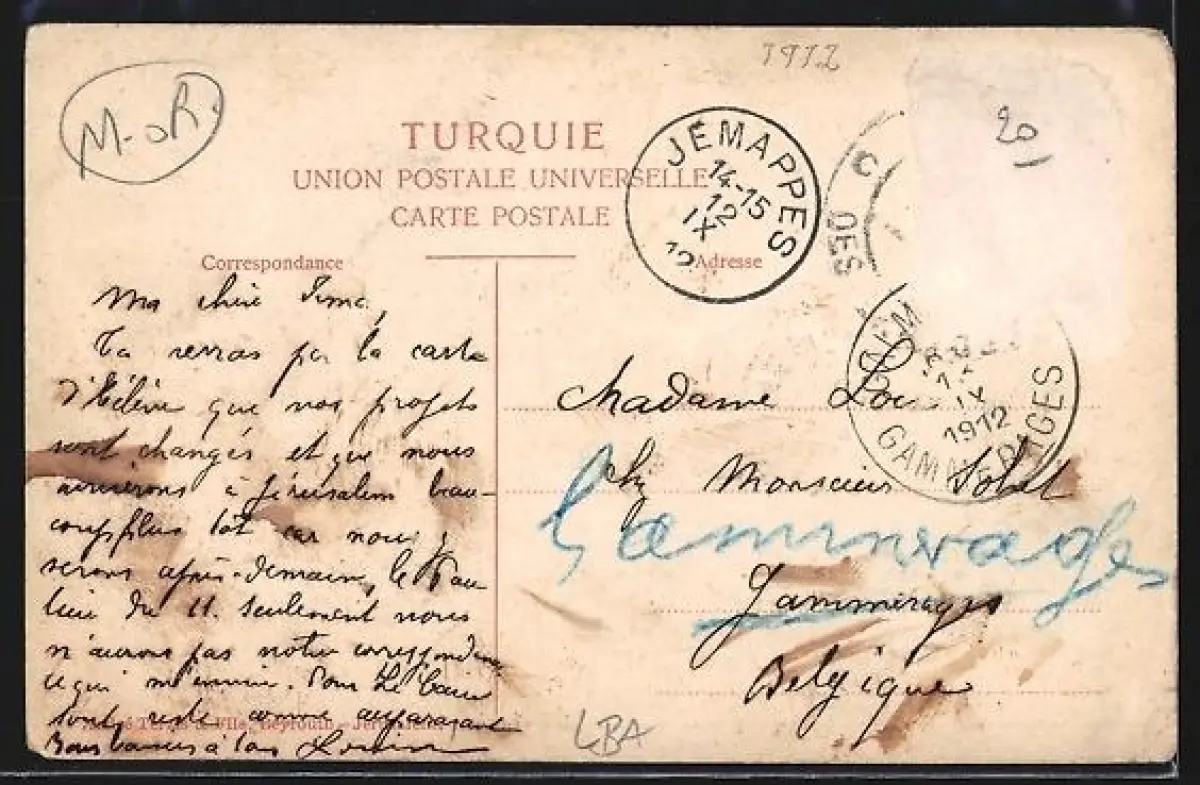 1912
M-OR.
20
TURQUIE
UNION POSTALE UNIVERSELLE
CARTE POSTALE
JEMAPPES
14-15
12
IX
12
DES
GAMMERAGES
IX
1912
Correspondance
Adresse
Ma chère
Tu verras par la carte
d'Hélène que nos projets
sont changés et que nous
arriverons à Jérusalem beau-
coup plus tôt car nous y
serons après-demain, le 8 au
lieu du 11. Seulement nous
n'aurons pas notre correspondance
ce qui m'ennuie. Pour le Caire
tout reste comme auparavant
Bons baisers à tous
Madame
Chez Monsieur
Gammerages
Gammerages
Belgique
Beyrouth
LBA